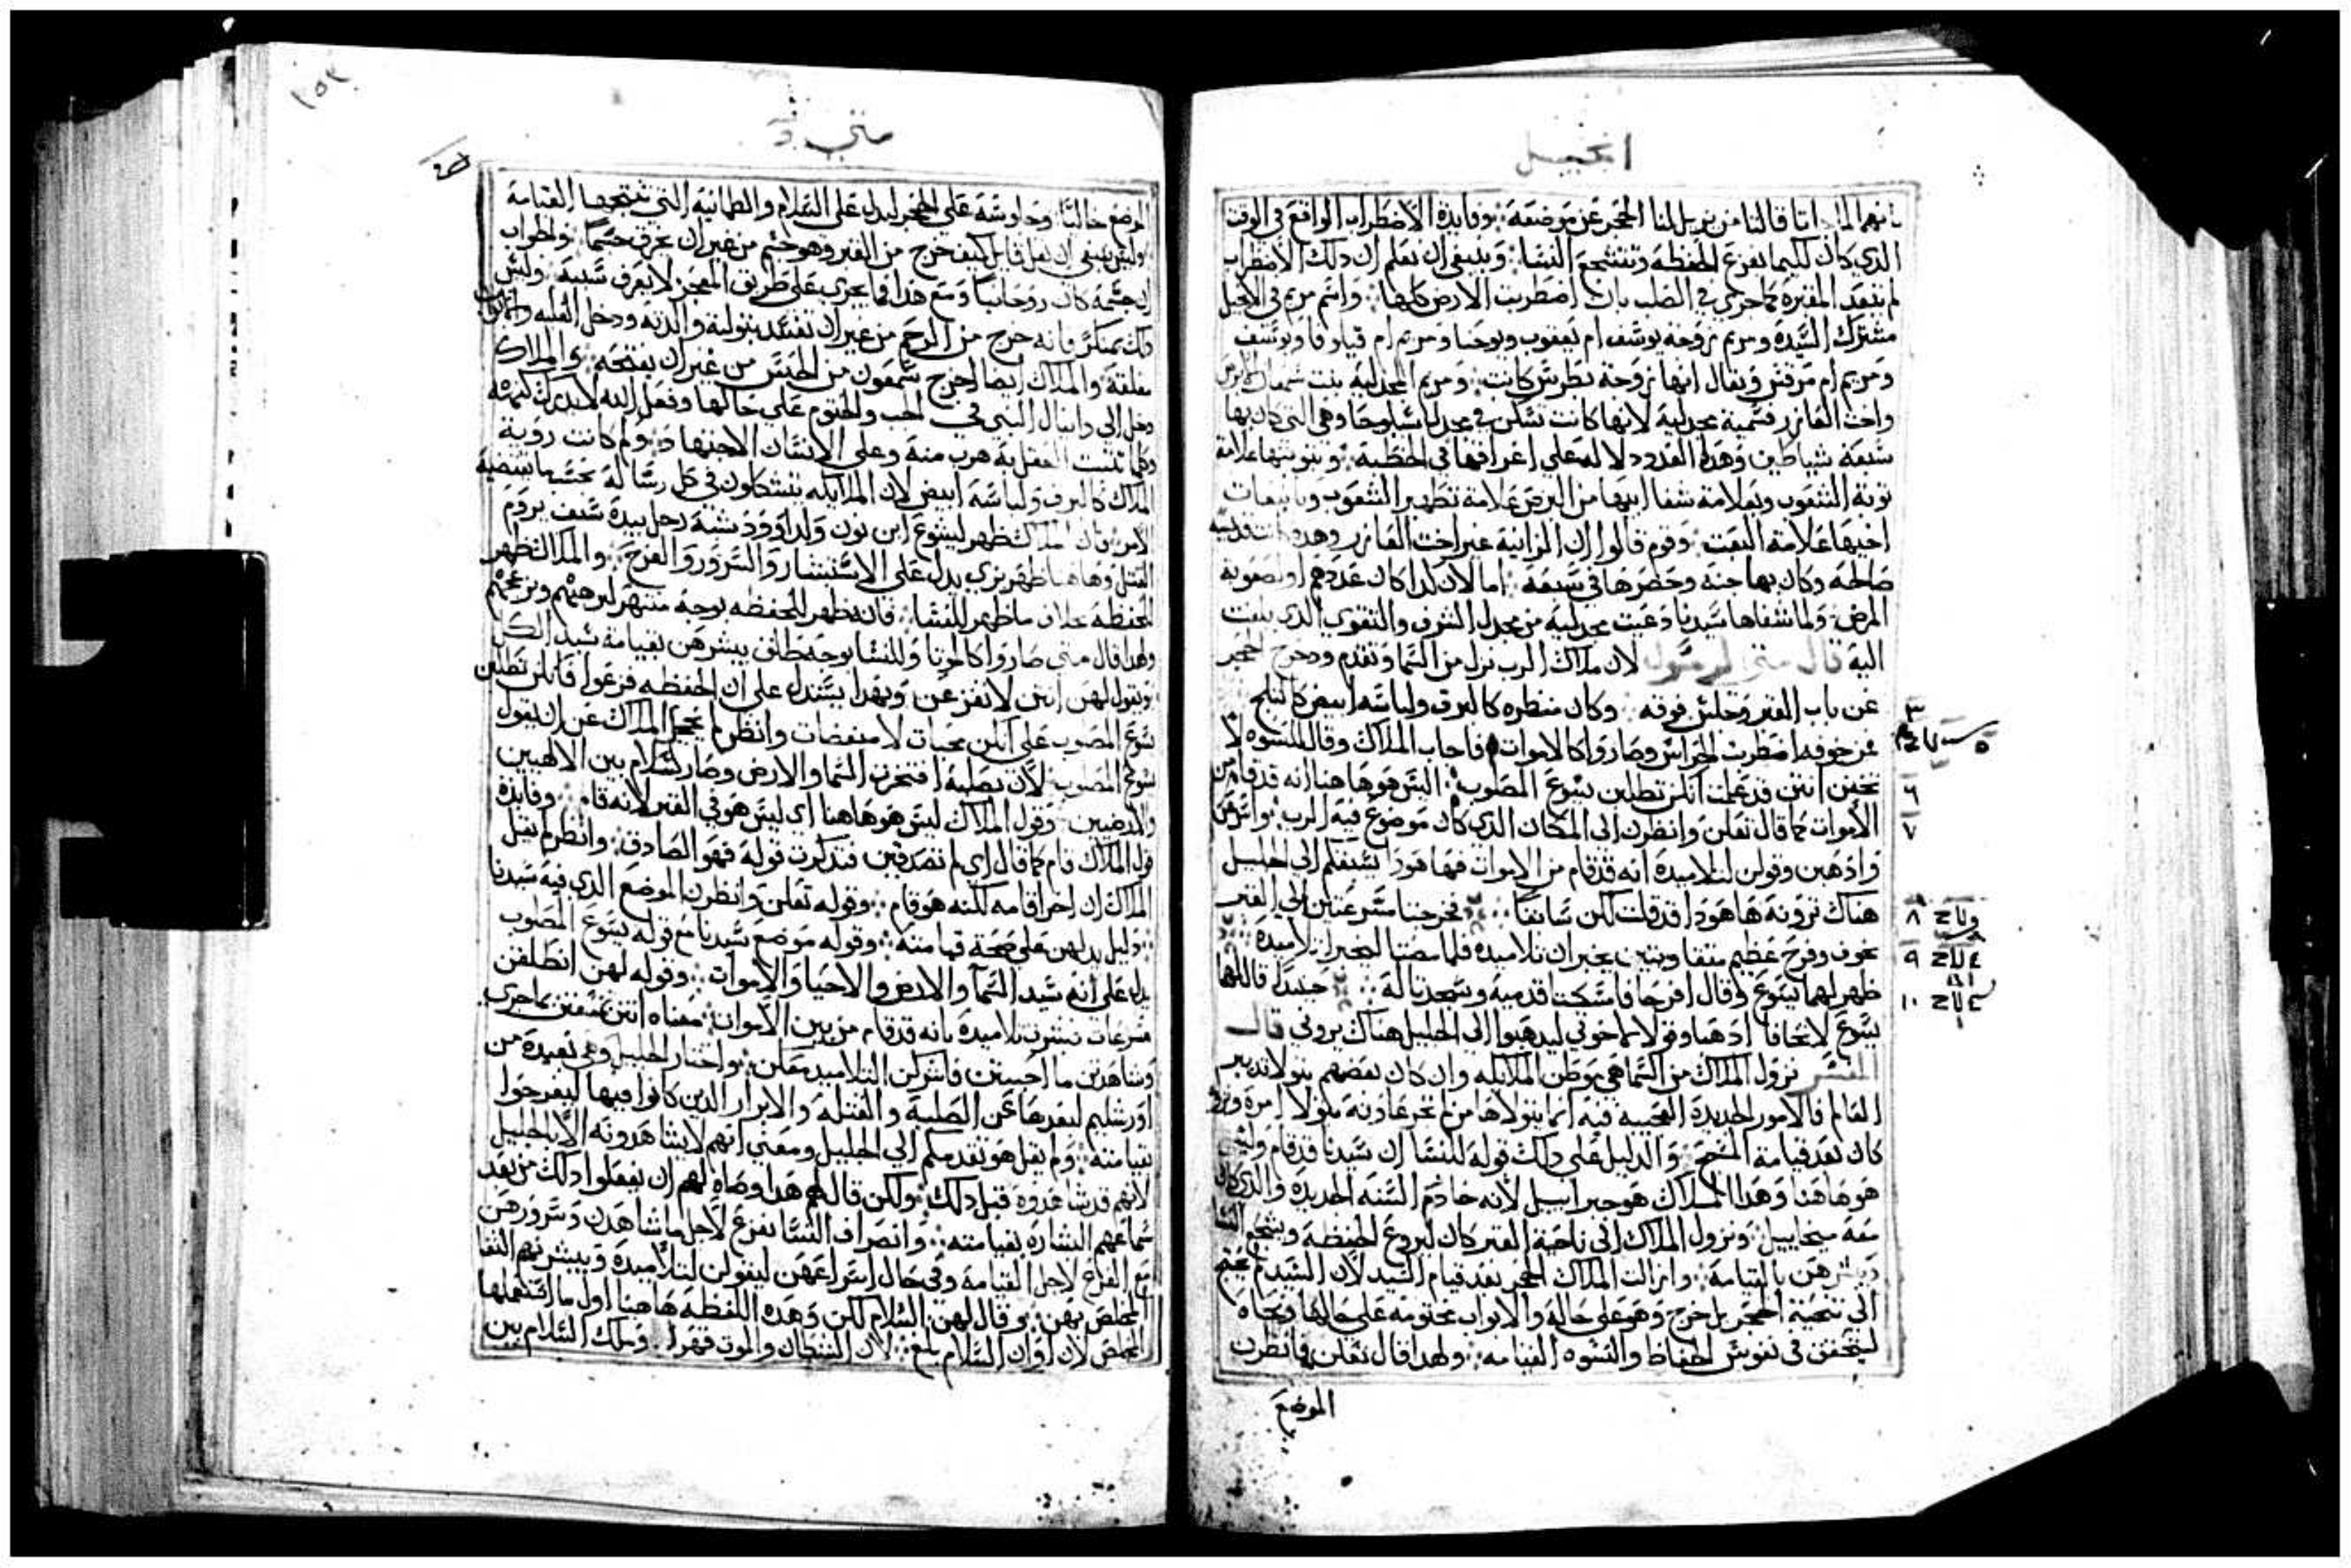 انجيل
قالتا من يزيل لنا الحجر عن موضعه وفايدة الاضطراب الواقع في الوقت
الذي كان لكيما يفزع الحفظه وتتشجع النسا وينبغي ان نعلم ان ذلك الاضطراب
لم يتعد المقبرة كما جرى في الصلب بان اضطربت الارض كلها واسم مريم في الانجيل
مشترك السيدة ومريم زوجة يوسف ام يعقوب ويوحنا ومريم ام قيلوفا ويوسف
ومريم ام مرقس ويقال انها زوجة بطرس كانت ومريم المجدلية بنت شمعان الابرص
واخت العازر فسميه مجدلية لانها كانت تسكن في مجدل شلوحا وهي التي كان بها
سبعة شياطين وهذا العدد دلاله على اغراقها في الخطية وبتوبتها علامة
توبة الشعوب وبعلامة شفا ابيها من البرص علامة تطهير الشعوب وبانبعاث
اخيها علامة البعث وقوم قالوا ان الزانية غير اخت العازر وهذه كانت قديسه
صالحه وكان بها جنه وحصرها في سبعه اما لان كذا كان عددهم او لصعوبة
المرض ولما شفاها سيدنا دعيت مجدلية من مجدل الشرف والتقوى الذي بلغت
اليه قال متى الرسول لان ملاك الرب نزل من السما وتقدم ودحرج الحجر
عن باب القبر وجلس فوقه وكان منظره كالبرق ولباسه ابيض كالثلج ٣
فمن خوفه اضطرب الحراس وصاروا كالاموات فاجاب الملاك وقال للنسوه لا ٥
تخفن انتن قد علمت انكن تطلبن يسوع المصلوب ليس هو هاهنا انه قد قام من ٦
الاموات كما قال تعلن وانظرن الى المكان الذي كان موضوع فيه الرب واسرعن ٧
واذهبن وقولن لتلاميذه انه قد قام من الاموات فها هوذا يسبقكم الى الجليل
هناك ترونه ها هوذا قد قلت لكن سابقا فخرجتا مسرعتين الى القبر ٨
بخوف وفرح عظيم يخبران تلاميذه فلما مضتا ليخبرا تلاميذه ٩
ظهر لهما يسوع وقال افرحا فامسكتا قدميه وسجدتا له حينيذ قال لهما ١٠
يسوع لا تخافا اذهبا وقولا لاخوتي ليذهبوا الى الجليل هناك يروني قال
المفسر نزول الملاك من السما هي موطن الملايكه وان كان بعضهم يتولا تدبير
العالم فالامور الجديدة العجيبه فيه انما يتولاها من لم تجر عادته بتولا امره
كان بعد قيامة المسيح والدليل على ذلك قوله للنسا ان سيدنا قد قام وليس
هو هاهنا وهذا الملاك هو جبراييل لانه خادم السنه الجديده والذي كان
معه ميخاييل ونزول الملاك الى ناحية القبر كان ليروع الحفظة ويشجع النسا
ويبشرهن بالقيامة وازالت الملاك الحجر بعد قيام السيد لان السيد لم يحتج
الى تنحية الحجر بل خرج وهو على حاله والابواب مختومه على حالها
ليتحقق في نفوس الحفاظ والنسوه القيامه ولهذا قال تعلن فانظرن
الموضع
متى
١٥٣
الموضع خاليا وجلوسه على الحجر ليدل على السلام والطمانينه التي نتجتها القيامة
وليس ينبغي ان يقول قايل كيف خرج من القبر وهو ختم من غير ان يخرق جسما والجواب
ان جسمه كان روحانيا ومع هذا فما يجري على طريق المعجز لا يعرف سببه وليس
ذلك بمنكر فانه خرج من الرحم من غير ان تفسد بتولية والدته ودخل العليه والابواب
مغلقة والملاك ايضا اخرج شمعون من الحبس من غير ان يفتحه والملاك
دخل الى دانيال النبي في الجب والختوم على حالها وفعل الله لا يدرك
المدلاك كالبرق ولباسه ابيض لان الملايكه يتشكلون في كل رسالة بحسب ما تقتضيه
الامر فان الملاك ظهر ليشوع ابن نون ولداوود بشبه رجل بيده سيف يروم
القتل وهاهنا ظهر بزي يدل على الاستبشار والسرور والفرح والملاك ظهر
للحفظه بخلاف ما ظهر للنسا فانه ظهر للحفظه بوجه منتهر ليرهبهم ويزعجهم
ولهذا قال متى صاروا كالموتا وللنسا بوجه طلق يبشرهن بقيامة سيد الكل
ويقول لهن انتن لا تفزعن وبهذا يستدل على ان الحفظه فزعوا فانكن تطلبن
يسوع المصلوب على انكن محبات لا مبغضات وانظر لم يخجل الملاك عن ان يقول
يسوع المصلوب لان بصلبه افتخرت السما والارض وصار السلام بين الالهيين
والارضيين وقول الملاك ليس هو هاهنا اي ليس هو في القبر لانه قام وفايدة
قول الملاك قام كما قال اي لم تصدقنني فتذكرن قوله فهو الصادق وانظر لم يقل
الملاك ان اخر اقامه لكنه هو قام وقوله تعلن وانظرن الموضع الذي فيه سيدنا
دليل يدلهن على صحة قيامته وقوله موضع سيدنا مع قوله يسوع المصلوب
يدل على انه سيد السما والارض والاحيا والاموات وقوله لهن انطلقن
مسرعات تبشرن تلاميذه بانه قد قام من بين الاموات معناه انتن تنتفعن بما جرى
وشاهدتن ما احببتن فاشركن التلاميذ معكن واختار الجليل وهي بعيدة من
اورشليم لبعدها عن الصلبة والقتلة والابرار الذين كانوا فيها ليفرحوا
بقيامته ولم يقل هو يتقدمكم الى الجليل ومعنى انهم لا يشاهدونه الا بالجليل
لانهم قد شاهدوه قبل ذلك ولكن قال لهم هذا وصاه لهم ان يفعلوا ذلك من بعد
سماعهم البشارة بقيامته وانصراف النسا بفزع لاجل ما شاهدن وسرورهن
مع الفرح لاجل القيامة وفي حال اسراعهن ليقولن لتلاميذه ويبشرنهم التقا
المخلص بهن وقال لهن السلام لكن وهذه اللفظه هاهنا اول ما استعملها
المخلص لان اوان السلام بلغ لان الشيطان والموت قهرا وملك السلام بين